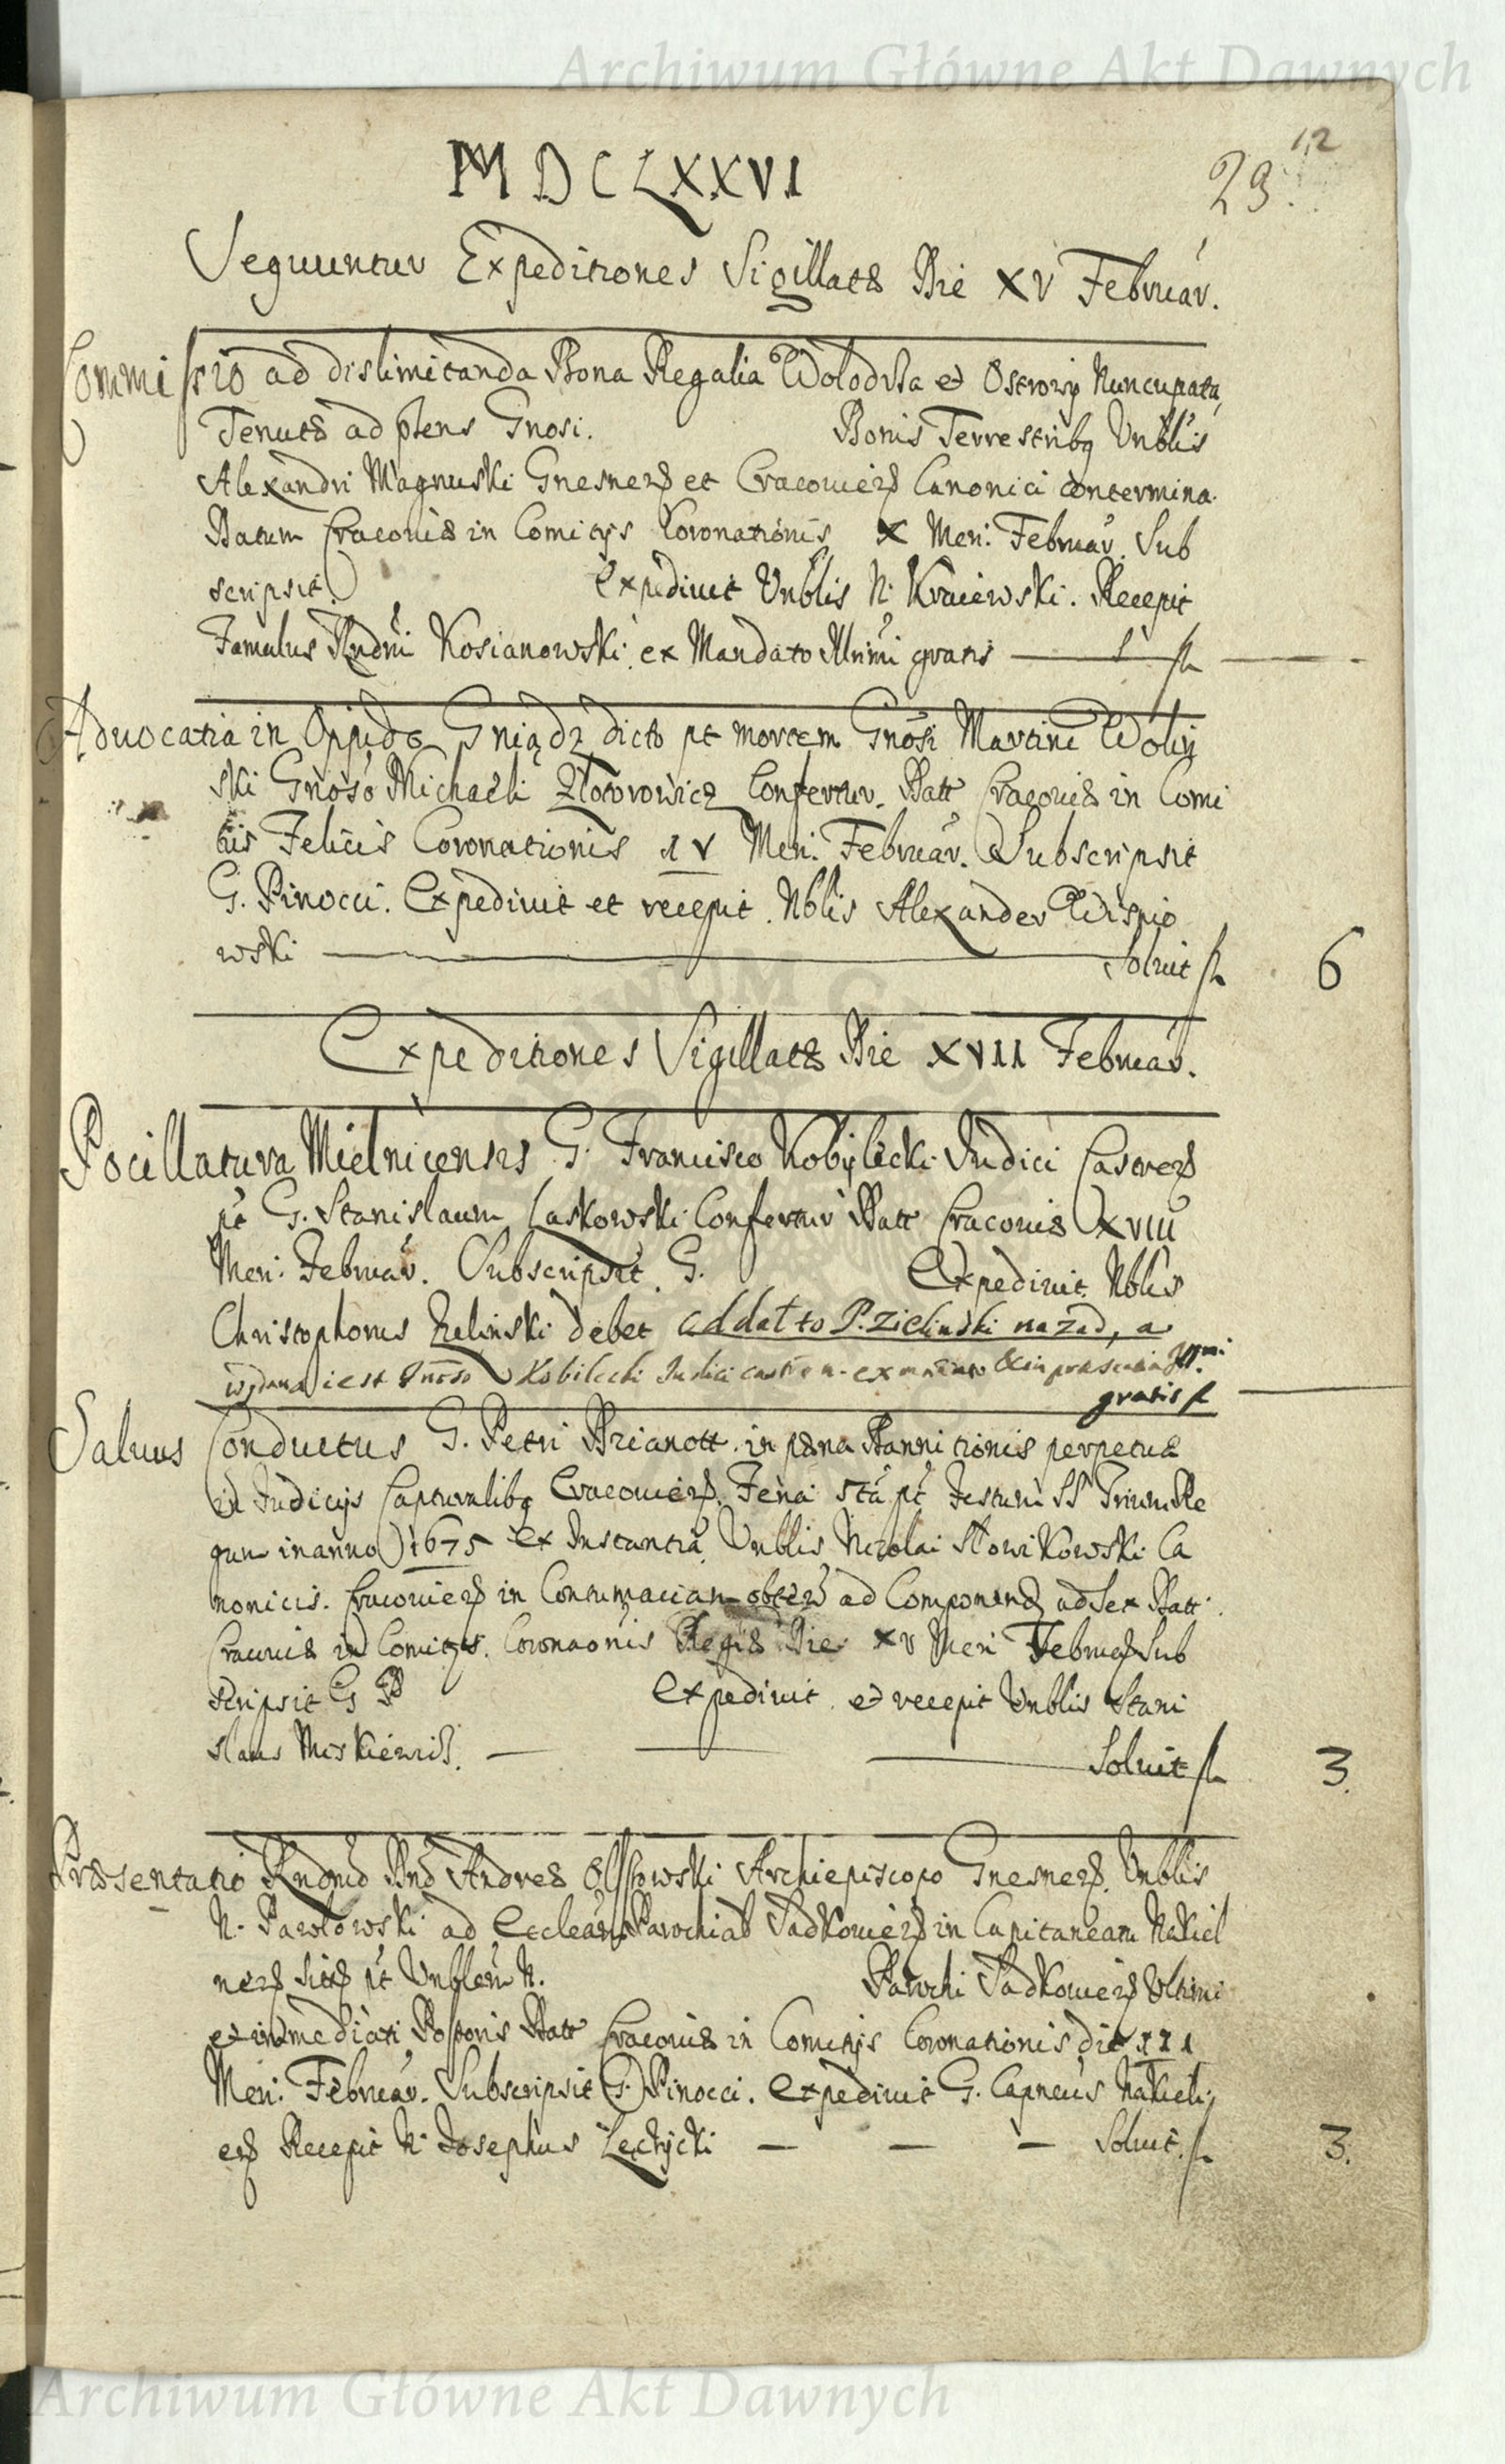 Archiwum Główne Akt Dawnych
12
MDCLXXVI
29.
Sequuntur Expeditiones Sigillatæ Die XV Februar.
Commissio ad dislimitanda Bona Regalia Wolodsta et Ostrowy Nuncupata,
Tenutæ ad pñens Gnosi. Bonis Terrestribq Vnblis
Alexandri Magnuski Gnesneñ et Cracovieñ Canonici contermina.
Datum Cracoviæ in Comitijs Coronationis X Men: Februar. Sub
scripsit. Expedivit Vnblis N. Kraiewski. Recepit
Famulus Rndmi Kosianowski ex Mandato Illrimi gratis fl
Advocatia in Oppido Gniądz dicto pt mortem Gnosi Martini Woliy
ski Gnoso Michaeli Zlotorowicz Confertur. Datt Cracoviæ in Comi
tiis Felicis Coronationis IV Men: Februar. Subscripsit
G. Pinocci. Expedivit et recepit Nblis Alexander Wispio
wski Soluit fl 6
Expeditiones Sigillatæ Die XVII Februar.
Pocillatura Mielnicensis G. Francisco Kobylecki Judici Castreñ
pt G. Stanislaum Laskowski Confertur Datt Cracoviæ XVIII
Men: Februar. Subscripsit G. Expedivit Nblis
Christophorus Zelinski debet addat to P. Zielinski nazad, a
wydana iest Gnoso Kobilecki Judici in præsentia
gratis fl
Saluus Conductus G. Petri Brianott in pæna Bannitionis perpetuæ
in Judicijs Capturalibq Cracovieñ Feria pt Festum SS Trium Re
gum in anno 1675 ex Instantia Vnblis Nicolai Slowikowski Ca
nonicis. Cracovieñ in Contumaciam obteñ ad Componend ad Sex Datt.
Cracoviæ in Comitijs Coronaonis Regiæ Die XV Men Februar Sub
scripsit G P Expedivit et recepit Vnblis Stani
slaus Miskiewicz. Soluit fl 3.
Præsentatio Rndmo Dno Andreæ Olszowski Archiepiscopo Gnesneñ Vnblis
N. Pawlowski ad Eccleam Parochial Sadkowieñ in Capitaneatu Nakiel
neñ pt Vnblem N. Parochi Sadkowieñ Vltimi
et immediati Possoris Datt Cracoviæ in Comitijs Coronationis die III
Men: Februar. Subscripsit G. Pinocci. Expedivit G. Capneus Nakieli
eñ Recepit N. Josephus Łęchycki Soluit. fl 3.
Archiwum Główne Akt Dawnych